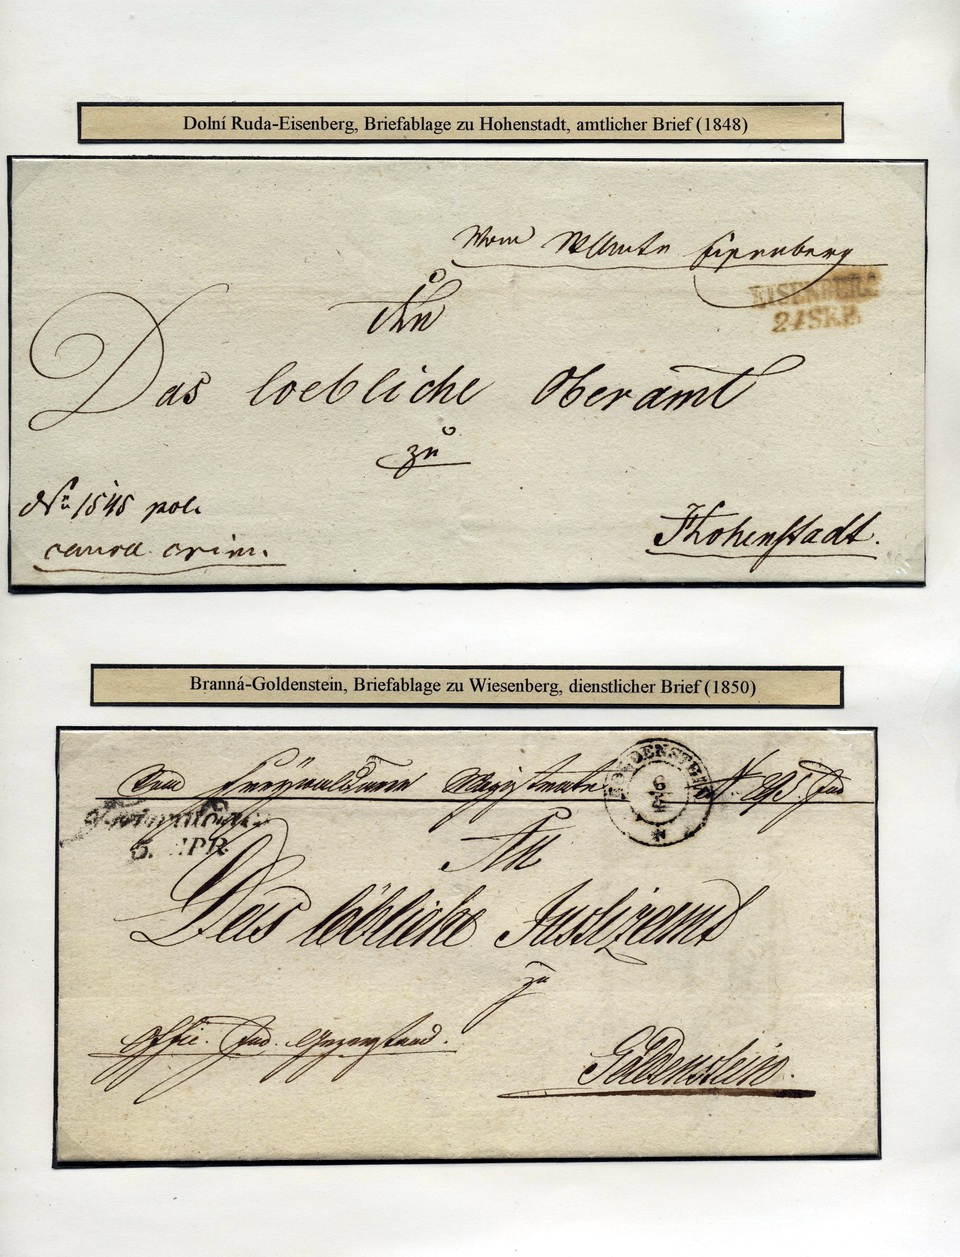 Dolní Ruda-Eisenberg, Briefablage zu Hohenstadt, amtlicher Brief (1848)
Vom Eisenberg
EISENBERG
24 SEP.
An
Das loebliche Oberamt
zu
Hohenstadt.
pol.
causa crim.
Branná-Goldenstein, Briefablage zu Wiesenberg, dienstlicher Brief (1850)
Vom Magistrate
GOLDENSTEIN
5. APR.
An
Das löbliche Justizamt
zu
Offic. Jud. Gegenstand.
Goldenstein.